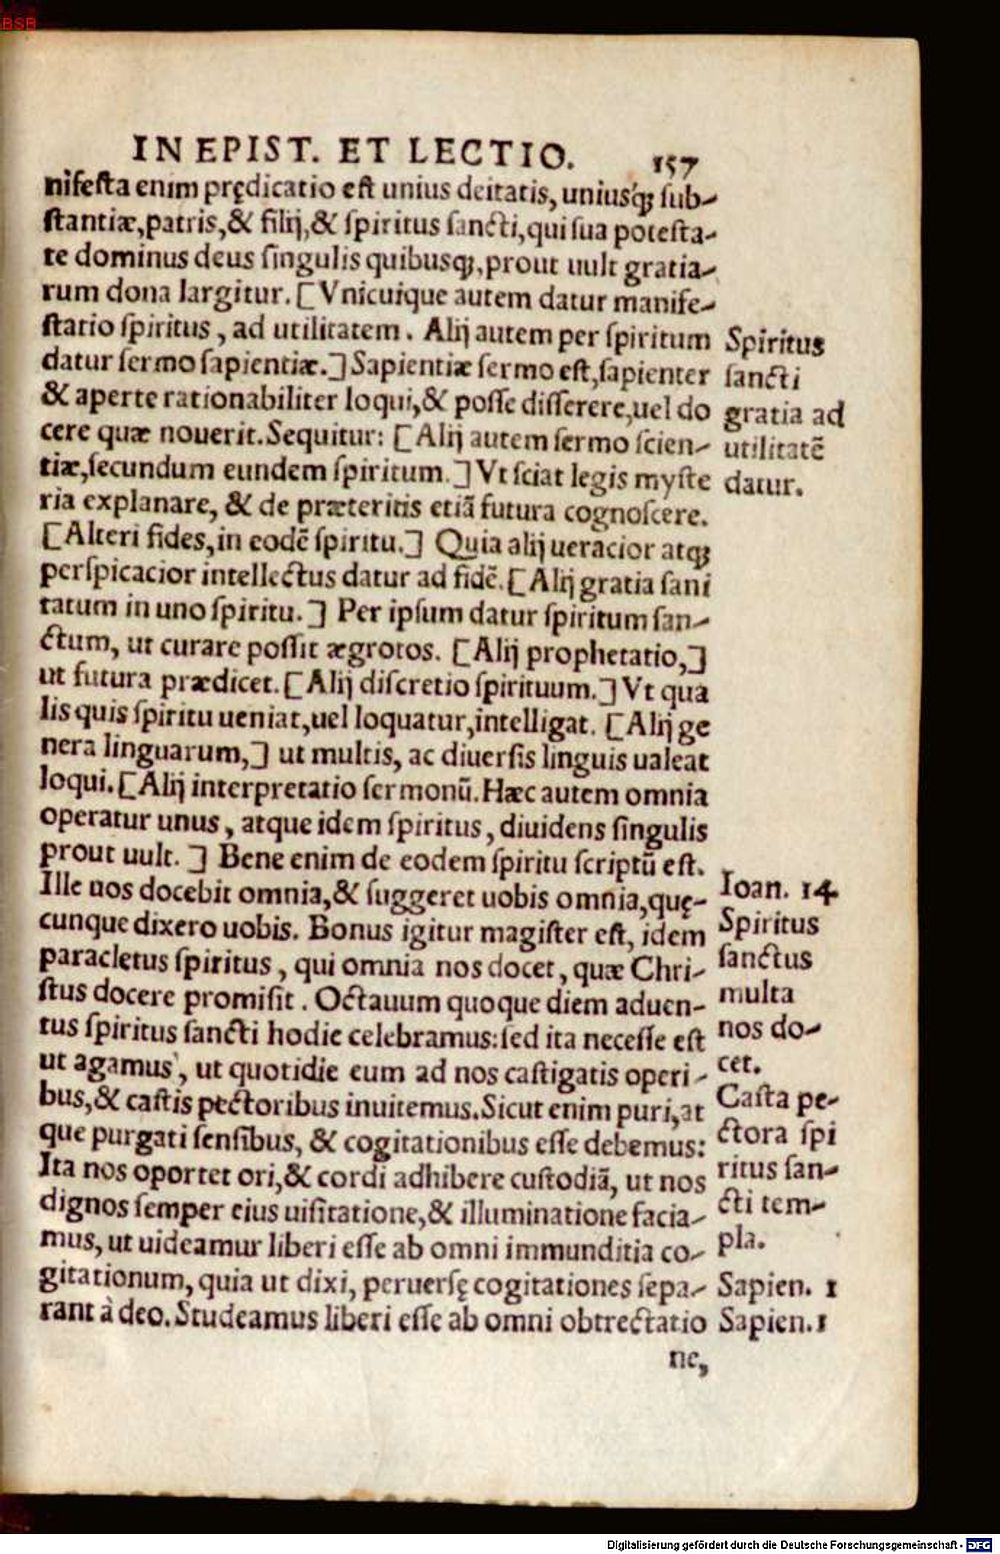 BSB
IN EPIST. ET LECTIO. 157
nifesta enim prędicatio est unius deitatis, unius'q; sub-
stantiæ, patris, & filij, & spiritus sancti, qui sua potesta-
te dominus deus singulis quibusq;, prout uult gratia-
rum dona largitur. [Vnicuique autem datur manife-
statio spiritus, ad utilitatem. Alij autem per spiritum
datur sermo sapientiæ.] Sapientiæ sermo est, sapienter
& aperte rationabiliter loqui, & posse disserere, uel do
cere quæ nouerit. Sequitur: [Alij autem sermo scien-
tiæ, secundum eundem spiritum.] Vt sciat legis myste
ria explanare, & de præteritis etiã futura cognoscere.
[Alteri fides, in eodẽ spiritu.] Quia alij ueracior atq;
perspicacior intellectus datur ad fidẽ. [Alij gratia sani
tatum in uno spiritu.] Per ipsum datur spiritum san-
ctum, ut curare possit ægrotos. [Alij prophetatio,]
ut futura prædicet. [Alij discretio spirituum.] Vt qua
lis quis spiritu ueniat, uel loquatur, intelligat. [Alij ge
nera linguarum,] ut multis, ac diuersis linguis ualeat
loqui. [Alij interpretatio sermonũ. Hæc autem omnia
operatur unus, atque idem spiritus, diuidens singulis
prout uult.] Bene enim de eodem spiritu scriptũ est.
Ille uos docebit omnia, & suggeret uobis omnia, quę-
cunque dixero uobis. Bonus igitur magister est, idem
paracletus spiritus, qui omnia nos docet, quæ Chri-
stus docere promisit. Octauum quoque diem aduen-
tus spiritus sancti hodie celebramus: sed ita necesse est
ut agamus, ut quotidie eum ad nos castigatis operi-
bus, & castis pectoribus inuitemus. Sicut enim puri, at
que purgati sensibus, & cogitationibus esse debemus:
Ita nos oportet ori, & cordi adhibere custodiã, ut nos
dignos semper eius uisitatione, & illuminatione facia-
mus, ut uideamur liberi esse ab omni immunditia co-
gitationum, quia ut dixi, peruersę cogitationes sepa-
rant à deo. Studeamus liberi esse ab omni obtrectatio
ne,
Spiritus
sancti
gratia ad
utilitatẽ
datur.
Ioan. 14
Spiritus
sanctus
multa
nos do-
cet.
Casta pe-
ctora spi
ritus san-
cti tem-
pla.
Sapien. 1
Sapien. 1
Digitalisierung gefördert durch die Deutsche Forschungsgemeinschaft - DFG